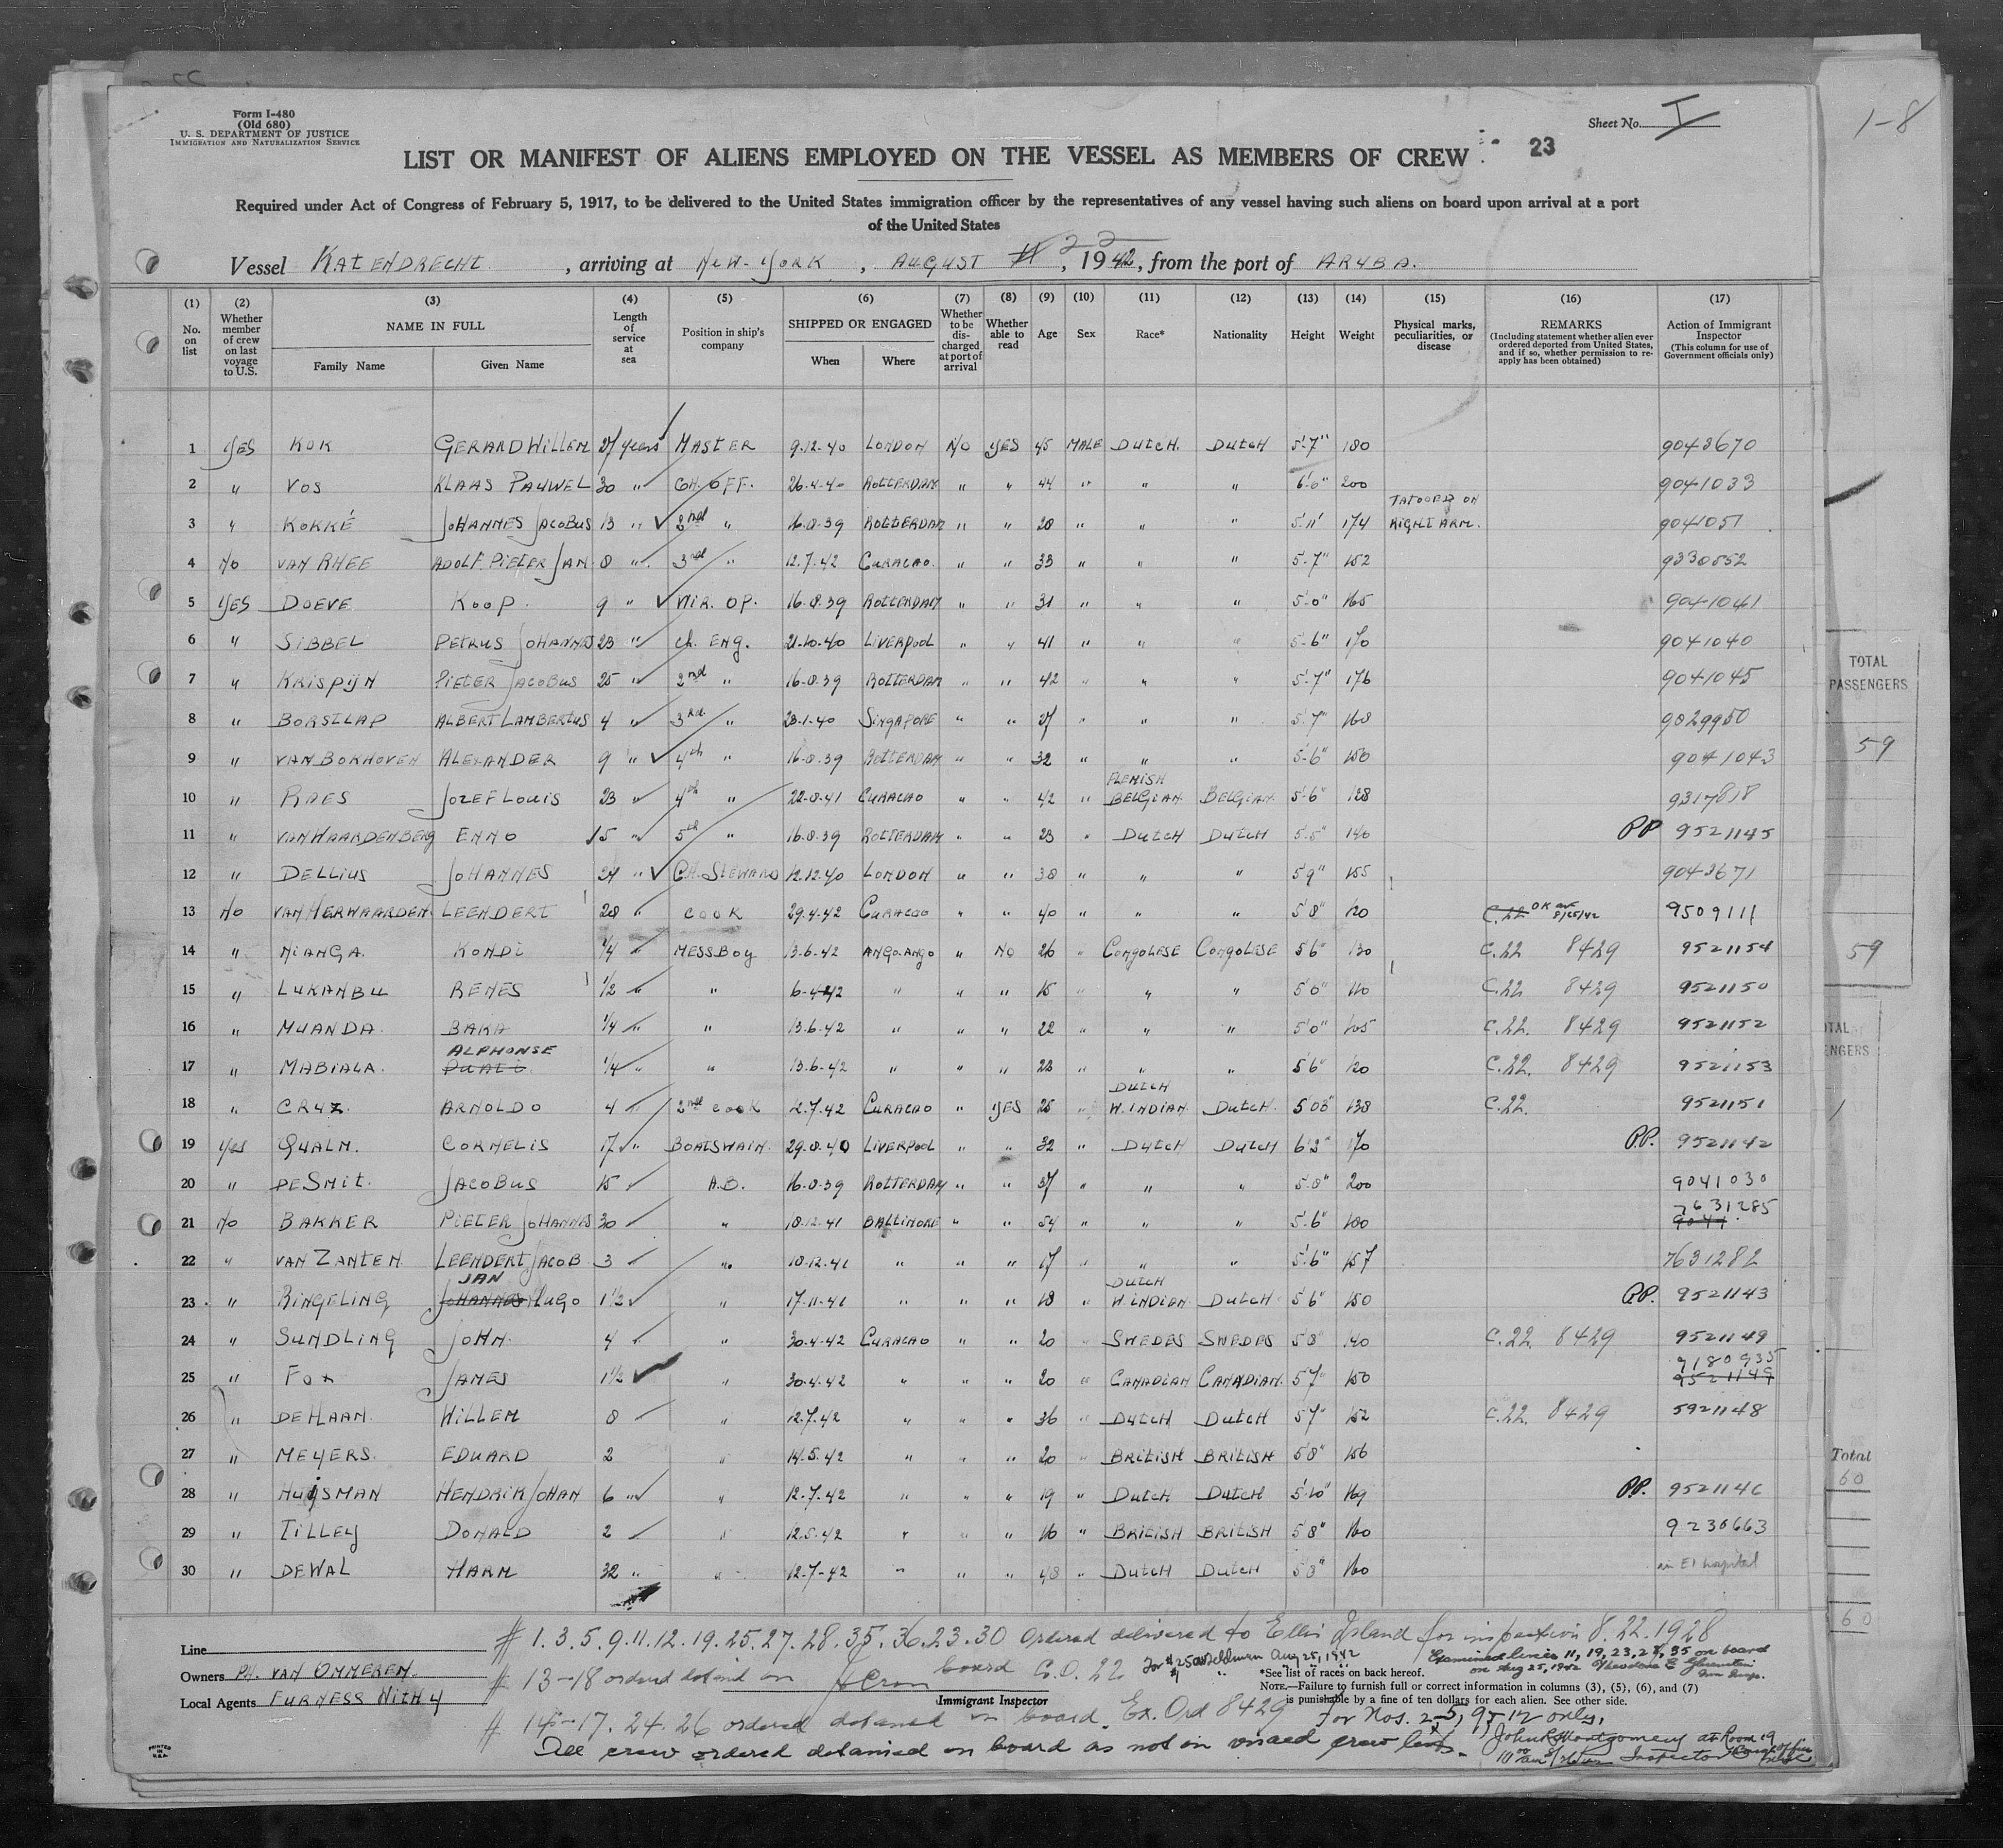 Form I-480
(Old 680)
U. S. DEPARTMENT OF JUSTICE
IMMIGRATION AND NATURALIZATION SERVICE
Sheet No. I
1-8
LIST OR MANIFEST OF ALIENS EMPLOYED ON THE VESSEL AS MEMBERS OF CREW 23
Required under Act of Congress of February 5, 1917, to be delivered to the United States immigration officer by the representatives of any vessel having such aliens on board upon arrival at a port
of the United States
Vessel KATENDRECHT, arriving at NEW-YORK, AUGUST 22, 1942, from the port of ARUBA.
(1) No. on list
(2) Whether member of crew on last voyage to U.S.
(3) NAME IN FULL Family Name Given Name
(4) Length of service at sea
(5) Position in ship's company
(6) SHIPPED OR ENGAGED When Where
(7) Whether to be discharged at port of arrival
(8) Whether able to read
(9) Age
(10) Sex
(11) Race*
(12) Nationality
(13) Height
(14) Weight
(15) Physical marks, peculiarities, or disease
(16) REMARKS (Including statement whether alien ever ordered deported from United States, and if so, whether permission to re-apply has been obtained)
(17) Action of Immigrant Inspector (This column for use of Government officials only)
1 YES KOK GERARD WILLEM 27 years MASTER 9-12-40 LONDON NO YES 45 MALE DUTCH. DUTCH 5'7" 180 9043670
2 " VOS KLAAS PAUWEL 30 " CH. OFF. 26-4-40 ROTTERDAM " " 44 " " " 6'0" 200 9041033
3 " KOKKÉ JOHANNES JACOBUS 13 " 2nd " 16-8-39 ROTTERDAM " " 28 " " " 5'11" 174 TATOOED ON RIGHT ARM. 9041051
4 NO VAN RHEE ADOLF PIETER JAN 8 " 3rd " 12-7-42 CURACAO. " " 33 " " " 5'7" 152 9330852
5 YES DOEVE KOOP. 9 " WIR. OP. 16-8-39 ROTTERDAM " " 31 " " " 5'8" 165 9041041
6 " SIBBEL PETRUS JOHANNES 23 " CH. ENG. 21-10-40 LIVERPOOL " " 41 " " " 5'6" 170 9041040
7 " KRISPIJN PIETER JACOBUS 25 " 2nd " 16-8-39 ROTTERDAM " " 42 " " " 5'7" 176 9041045
8 " BORSTLAP ALBERT LAMBERTUS 4 " 3rd " 23-1-40 SINGAPORE " " 27 " " " 5'7" 168 9829950
9 " VAN BOKHOVEN ALEXANDER 9 " 4th " 16-8-39 ROTTERDAM " " 32 " " " 5'6" 150 9041043
10 " RAES JOZEF LOUIS 23 " 4th " 22-8-41 CURACAO " " 42 " FLEMISH BELGIAN BELGIAN. 5'6" 128 9317818
11 " VAN WAARDENBERG ENNO 5 " 5th " 16-8-39 ROTTERDAM " " 23 " DUTCH DUTCH 5'5" 140 PP 9521145
12 " DELLIUS JOHANNES 24 " CH. STEWARD 12-12-40 LONDON " " 38 " " " 5'9" 155 9043671
13 NO VAN HERWAARDEN LEENDERT 28 " COOK 29-4-42 CURACAO " " 40 " " " 5'8" 120 C.22 OK 8/25/42 9509111
14 " NIANGA. KONDI 1/4 " MESSBOY 13-6-42 ANGO-ANGO " NO 26 " CONGOLESE CONGOLESE 5'6" 130 C.22 8429 9521154
15 " LUKANBU RENES 1/2 " " 6-4-42 " " " 15 " " " 5'0" 110 C.22 8429 9521150
16 " MUANDA. BAKA 1/4 " " 13-6-42 " " " 22 " " " 5'0" 105 C.22. 8429 9521152
17 " MABIALA. ALPHONSE 1/4 " " 13-6-42 " " " 22 " " " 5'6" 120 C.22. 8429 9521153
18 " CRUZ. ARNOLDO 4 " 2nd COOK 12-7-42 CURACAO " YES 25 " DUTCH W. INDIAN DUTCH. 5'08" 138 C.22. 9521151
19 YES QUALM. CORNELIS 17 " BOATSWAIN. 29-8-40 LIVERPOOL " " 32 " DUTCH DUTCH 6'3" 170 P.P. 9521142
20 " DE SMIT. JACOBUS 15 A.B. 16-8-39 ROTTERDAM " " 37 " " " 5'8" 200 9041030
21 NO BAKKER PIETER JOHANNES 30 " 18-12-41 BALTIMORE " " 54 " " " 5'6" 180 7631285 9041
22 " VAN ZANTEN LEENDERT JACOB 3 " 18-12-41 " " " 17 " " " 5'6" 157 7631282
23 " RINGELING JAN JOHANNES HUGO 1 1/2 " 17-11-41 " " " 18 DUTCH W. INDIAN DUTCH 5'6" 150 P.P. 9521143
24 " SUNDLING JOHN. 4 " 30-4-42 CURACAO " " 20 " SWEDES SWEDES 5'8" 140 C.22. 8429 9521149
25 " FOX JAMES 1 1/2 " 30-4-42 " " " 20 " CANADIAN CANADIAN. 5'7" 150 7180935 9521149
26 " DE HAAN. WILLEM 8 " 12-7-42 " " " 36 " DUTCH DUTCH 5'7" 152 C.22. 8429 5921148
27 " MEYERS. EDUARD 2 " 14-5-42 " " " 20 " BRITISH BRITISH 5'8" 156
28 " HUIJSMAN HENDRIK JOHAN 6 " " 12-7-42 " " " 19 " DUTCH DUTCH 5'10" 169 P.P. 9521146
29 " TILLEY DONALD 2 " 12-5-42 " " " 16 " BRITISH BRITISH 5'8" 160 9230663
30 " DE WAL HARM 32 " " 12-7-42 " " " 48 " DUTCH DUTCH 5'8" 160 in EI hospital
TOTAL PASSENGERS
59
59
Total
60
60
Line
Owners PH. VAN OMMEREN.
Local Agents FURNESS WITHY
# 1.3.5.9.11.12.19.25.27.28.35.36.23.30 ordered delivered to Ellis Island for inspection 8.22.1928
# 13-18 ordered detained on board C.O. 22
Immigrant Inspector
Examined lines 11, 19, 23, 28, 35 on board
on Aug 25, 1942
*See list of races on back hereof.
NOTE.—Failure to furnish full or correct information in columns (3), (5), (6), and (7)
is punishable by a fine of ten dollars for each alien. See other side.
# 14-17. 24. 26 ordered detained on board. Ex. Ord 8429
For Nos. 2-5, 9-12 only.
All crew ordered detained on board as not on visaed crew lists.
John R Montgomery at Room 19
Inspector
PRINTED IN U.S.A.